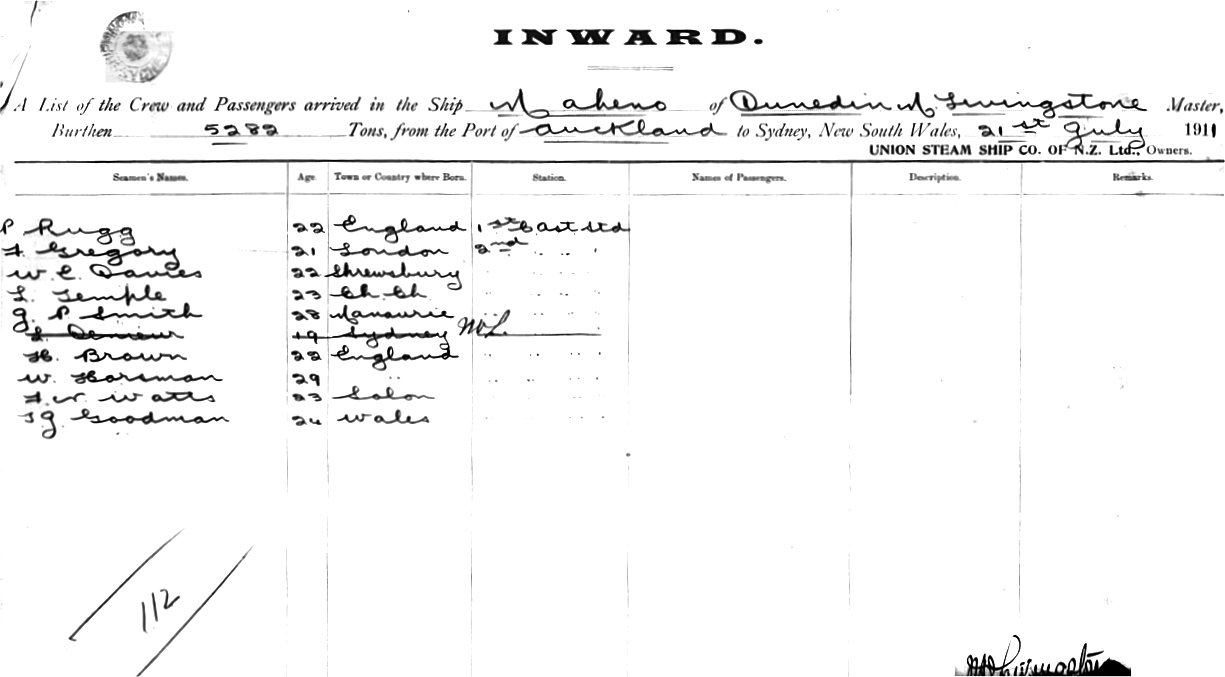 INWARD.
A List of the Crew and Passengers arrived in the Ship Maheno of Dunedin M Livingstone Master,
Burthen 5282 Tons, from the Port of Auckland to Sydney, New South Wales, 21st July 1911
UNION STEAM SHIP CO. OF N.Z. Ltd., Owners.
Seamen's Names. Age. Town or Country where Born. Station. Names of Passengers. Description. Remarks.
P Rugg 22 England 1st Cast Std
F Gregory 21 London 2nd .. ..
W E Davies 22 Shrewsbury .. .. .. ..
L. Temple 23 Ch. Ch. .. .. .. ..
G. P Smith 28 .. .. .. ..
19 Sydney
H. Brown 22 England .. .. .. ..
W. Horsman 29 .. .. .. .. ..
F. W. Watts 23 .. .. .. ..
G. Goodman 24 Wales .. .. .. ..
112